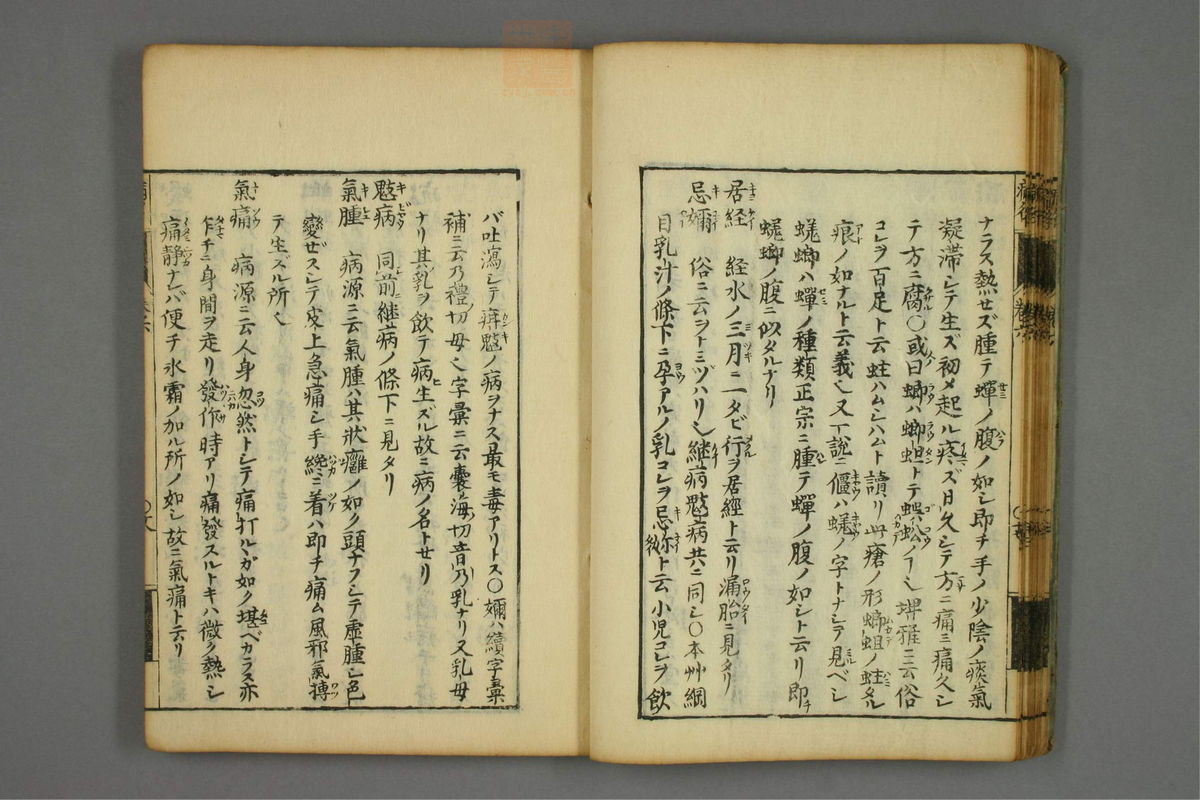 ナラス熱セズ腫テ蟬ノ腹ノ如シ即チ手ノ少陰ノ痰氣
凝滞シテ生ズ初メ起ル疼ズ日久シテ方ニ痛ミ痛久シ
テ方ニ腐〇或曰蝍ハ蝍蛆トテ蜈蚣ノヿ也埤雅ニ云俗
コレヲ百足ト云蛀ハムシハムト讀リ此瘡ノ形蝍蛆ノ蛀タル
痕ノ如ナルト云義也又一說ニ傴ハ蜣ノ字トナシテ見ベシ
蜣螂ハ蟬ノ種類正宗ニ腫テ蟬ノ腹ノ如シト云リ即チ
蜣螂ノ腹ニ似タルナリ
居経 経水ノ三月ニ一タビ行ヲ居經ト云リ漏胎ニ見タリ
忌嬭 俗ニ云ヲトミヅハリ也継病鬾病共ニ同シ〇本艸綱
目乳汁ノ條下ニ孕アルノ乳コレヲ忌奶ト云小児コレヲ飲
バ吐瀉シテ疳鬾ノ病ヲナス最モ毒アリトス〇嬭ハ續字彙
補ニ云乃禮切母也字彙ニ云囊海切音乃乳ナリ又乳母
ナリ其乳ヲ飲テ病生ズル故ニ病ノ名トセリ
鬾病 同前継病ノ條下ニ見タリ
氣腫 病源ニ云氣腫ハ其狀癰ノ如ク頭ナフシテ虚腫シ色
變ゼスシテ皮上急痛シ手纔ニ着ハ即チ痛ム風邪氣搏
テ生ズル所也
氣痛 病源ニ云人身忽然トシテ痛打ルヽガ如ク堪ベカラス亦
乍チニ身間ヲ走リ發作時アリ痛發スルトキハ微ク熱シ
痛静ナレバ便チ氷霜ノ加ル所ノ如シ故ニ氣痛ト云リ